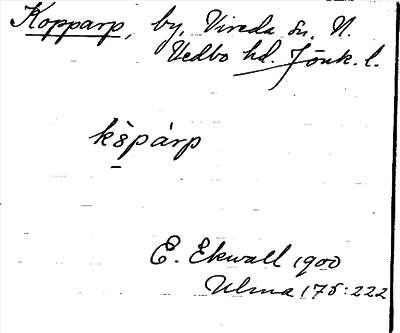 Kopparp, by, Vireda sn. N.
Vedbo hd. Jönk. l.
kö̀párp
E. Ekwall 1900
Ulma 175:222